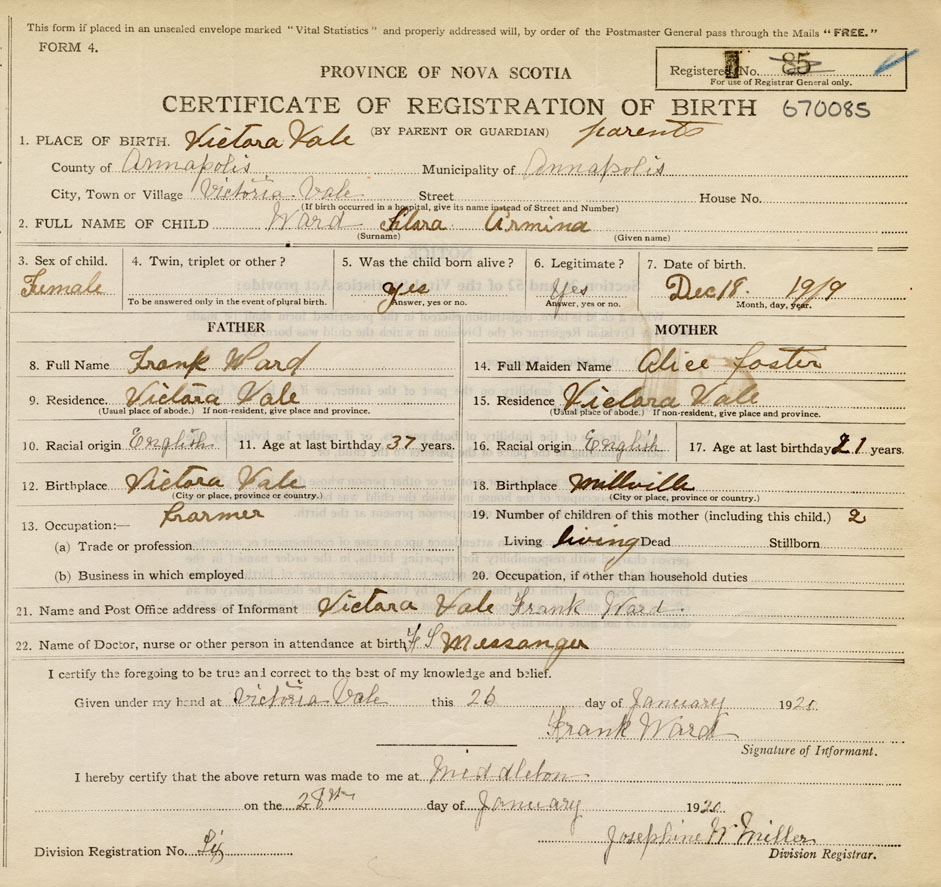 This form if placed in an unsealed envelope marked "Vital Statistics" and properly addressed will, by order of the Postmaster General pass through the Mails "FREE."
FORM 4.
PROVINCE OF NOVA SCOTIA
Registered No. 85
For use of Registrar General only.
CERTIFICATE OF REGISTRATION OF BIRTH 670085
(BY PARENT OR GUARDIAN) parents
1. PLACE OF BIRTH. Victora Vale
County of Annapolis Municipality of Annapolis
City, Town or Village Victoria Vale Street House No.
(If birth occurred in a hospital, give its name instead of Street and Number)
2. FULL NAME OF CHILD Ward Armina
(Surname) (Given name)
3. Sex of child. 4. Twin, triplet or other? 5. Was the child born alive? 6. Legitimate? 7. Date of birth.
Female yes Yes Dec 18. 1919
To be answered only in the event of plural birth. Answer, yes or no. Answer, yes or no. Month, day, year.
FATHER MOTHER
8. Full Name Frank Ward 14. Full Maiden Name Alice foster
9. Residence. Victora Vale 15. Residence Victora Vale
(Usual place of abode.) If non-resident, give place and province. (Usual place of abode.) If non-resident, give place and province.
10. Racial origin English 11. Age at last birthday 37 years. 16. Racial origin English 17. Age at last birthday 21 years.
12. Birthplace Victora Vale 18. Birthplace Millville
(City or place, province or country.) (City or place, province or country.)
13. Occupation:— Frarmer 19. Number of children of this mother (including this child.) 2
(a) Trade or profession Living living Dead Stillborn
(b) Business in which employed 20. Occupation, if other than household duties
21. Name and Post Office address of Informant Victora Vale Frank Ward.
22. Name of Doctor, nurse or other person in attendance at birth Messanger
I certify the foregoing to be true and correct to the best of my knowledge and belief.
Given under my hand at Victoria Vale this 26 day of January 1920
Frank Ward
Signature of Informant.
I hereby certify that the above return was made to me at Middleton.
on the 28th day of January 1920
Josephine W. Miller
Division Registration No. Division Registrar.